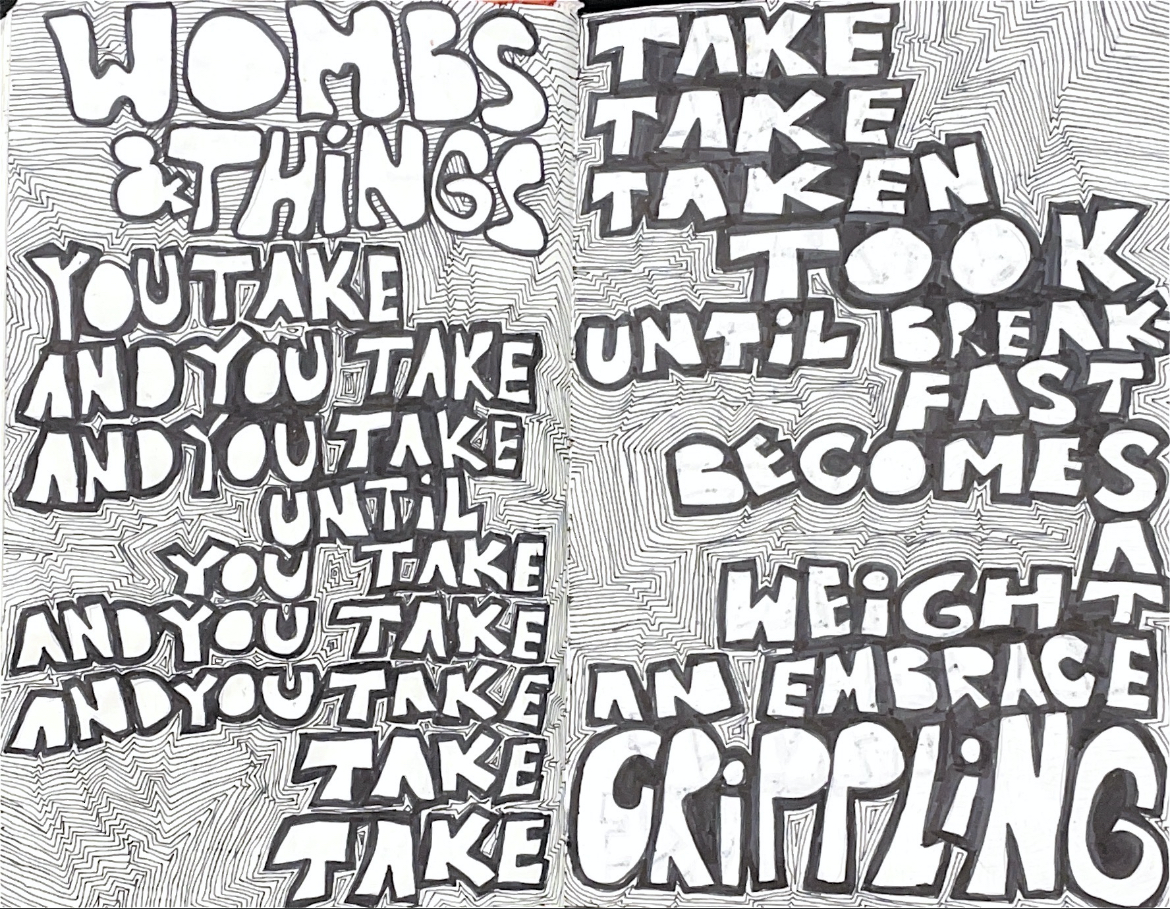 WOMBS
& THiNGS
YOU TAKE
AND YOU TAKE
AND YOU TAKE
UNTiL
YOU TAKE
AND YOU TAKE
AND YOU TAKE
TAKE
TAKE
TAKE
TAKE
TAKEN
TOOK
UNTiL BREAK
FAST
BECOMES
A
WEiGHT
AN EMBRACE
CRiPPLiNG